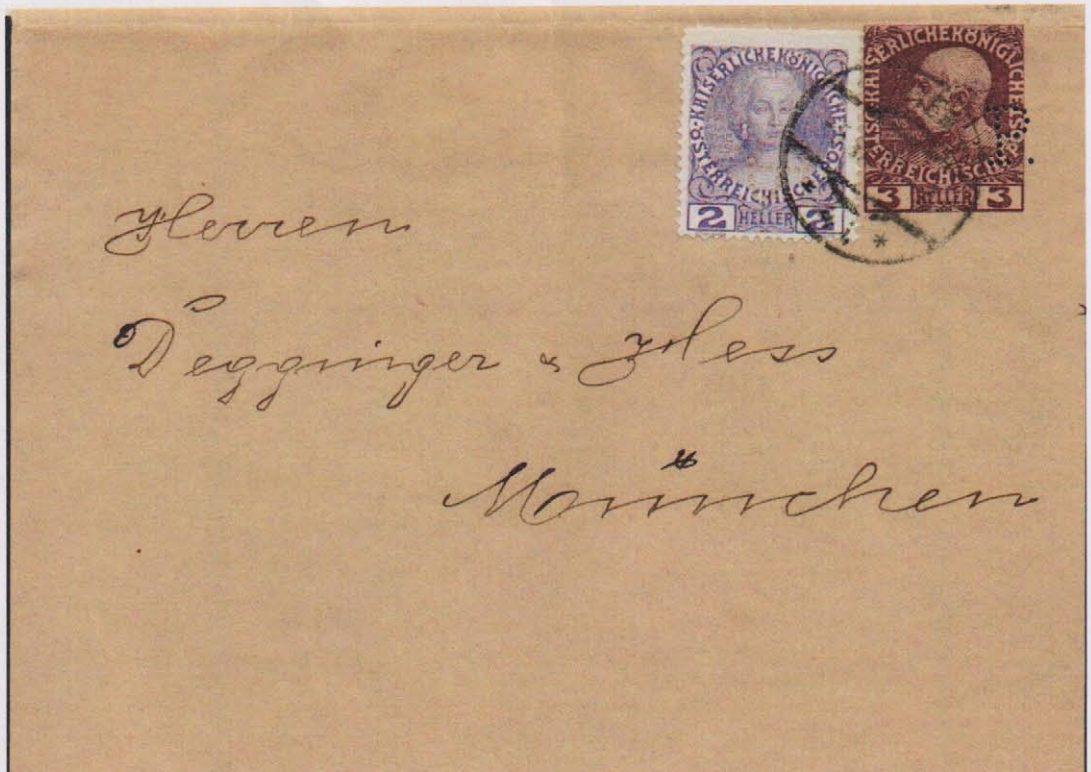 KAISERLICHEKÖNIGLICHE
ÖSTERREICHISCHEPOST
2 HELLER 2
KAISERLICHEKÖNIGLICHE
ÖSTERREICHISCHEPOST
3 HELLER 3
Herren
Degginger & Hess
München